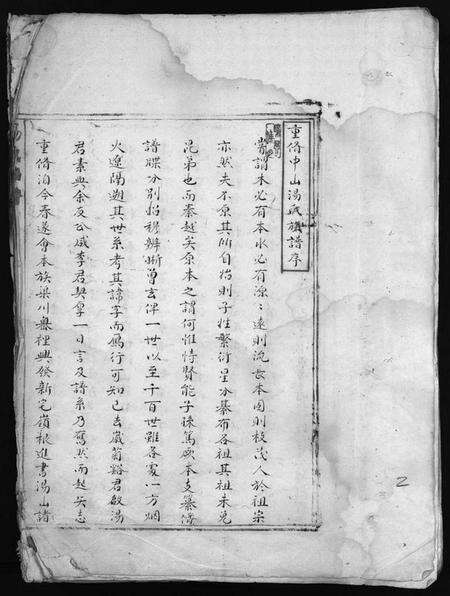 重修中山湯氏族譜序
嘗謂木必有本水必有源源遠則流長本固則枝茂人於祖宗
亦然夫不原其所自始則子姓繁衍星分碁布各祖其祖未免
兄弟也而秦越矣原本之謂何惟恃賢能子孫篤厥本支纂修
譜牒分別昭穆辨晰曾玄俾一世以至千百世雖各處一方烟
火遼隔朔其世系考其諱字而雁行可知已去歲菊谿君毅湯
君素與余友公咸李君契厚一日言及譜系乃奮然而起矣志
重修洎今春遂會本族梁川舉裡興發新宅嶺根進書湯山諸
2